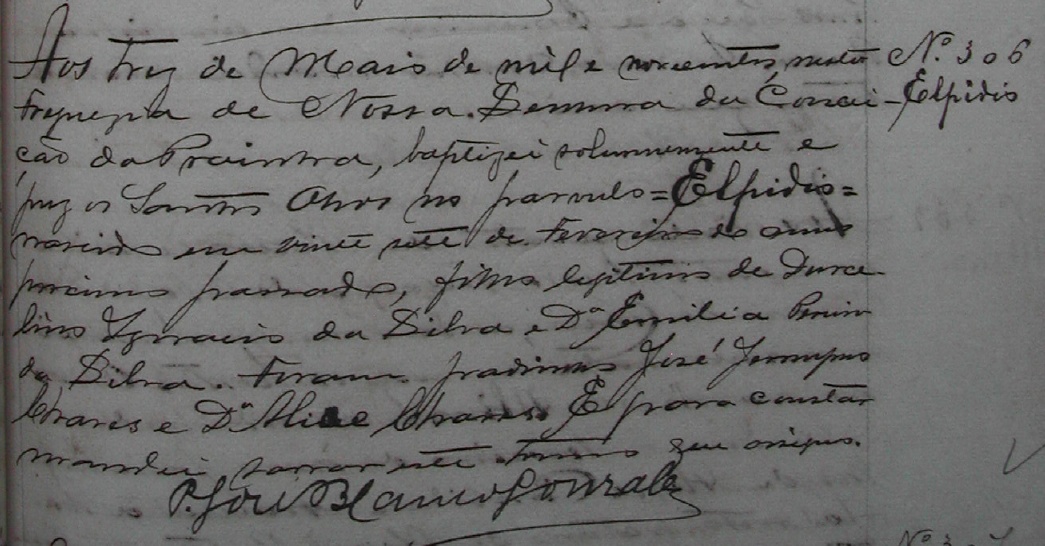 Aos trez de Maio de mil e novecentos, nesta Nº 306
freguezia de Nossa Senhora da Concei- Elpidio
ção da Praínha, baptizei solemnemente e
puz os Santos Oleos no parvulo = Elpidio =
nascido em vinte sete de Fevereiro do anno
proximo passado, filho legitimo de Durce-
lino Ignacio da Silva e Dª Emilia
da Silva. Foram padrinhos José
Chaves e Dª Alice Chaves. E para constar
mandei lavrar este termo que assigno.
P. José Blanco Gonzalez